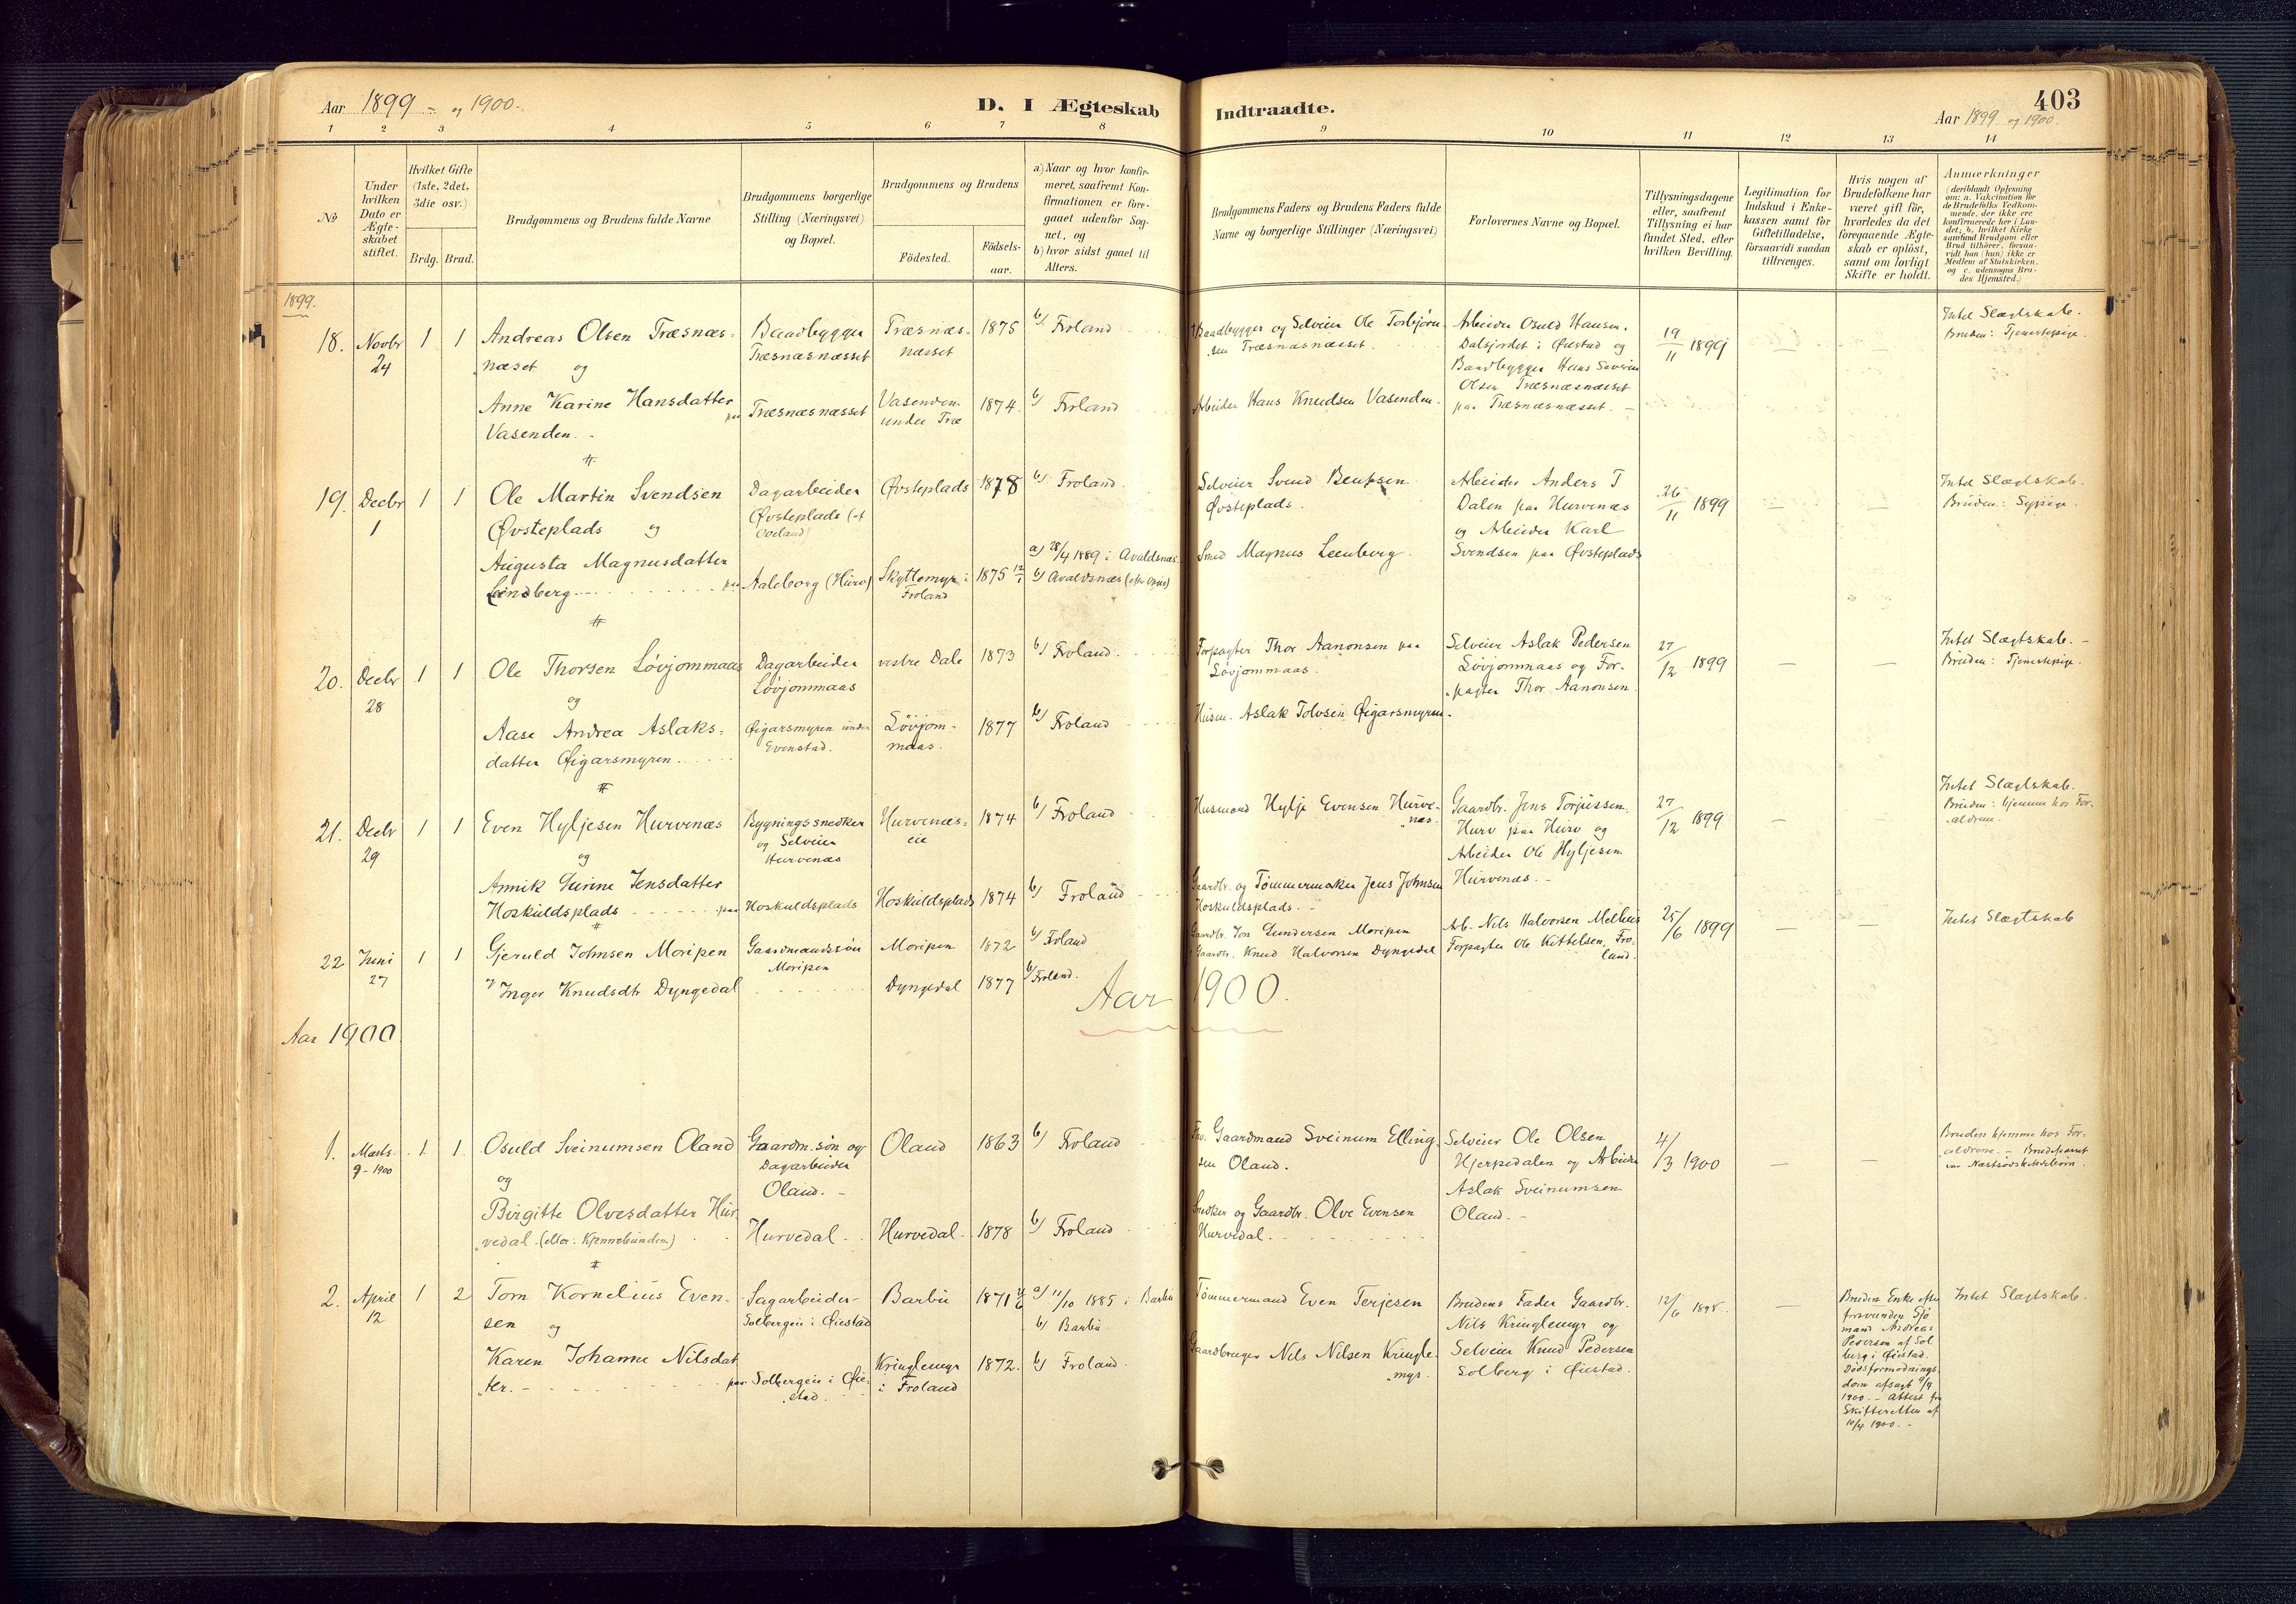 Aar 1899 = og 1900.
D. I Ægteskab Indtraadte.
403
Aar 1899 og 1900.
1 2 3 4 5 6 7 8 9 10 11 12 13 14
No
Under
hvilken
Dato er
Ægte-
skabet
stiftet.
Hvilket Gifte
(1ste, 2det,
3die osv.)
Brdg. Brud.
Brudgommens og Brudens fulde Navne
Brudgommens borgerlige
Stilling (Næringsvei)
og Bopæl.
Brudgommens og Brudens
Födested.
Födsels-
aar.
a) Naar og hvor konfir-
meret, saafremt Kon-
firmationen er fore-
gaaet udenfor Sog-
net, og
b) hvor sidst gaaet til
Alters.
Brudgommens Faders og Brudens Faders fulde
Navne og borgerlige Stillinger (Næringsvei)
Forlovernes Navne og Bopæl.
Tillysningsdagene
eller, saafremt
Tillysning ei har
fundet Sted, efter
hvilken Bevilling.
Legitimation for
Indskud i Enke-
kassen samt for
Giftetilladelse,
forsaavidt saadan
tiltrænges.
Hvis nogen af
Brudefolkene har
været gift för,
hvorledes da det
foregaaende Ægte-
skab er oplöst,
samt om lovligt
Skifte er holdt.
Anmærkninger
(deriblandt Oplysning
om: a. Vakcination för
de Brudefolks Vedkom-
mende, der ikke ere
konfirmerede her i Lan-
det; b. hvilket Kirke
samfund Brudgom eller
Brud tilhörer, forsaa-
vidt han (hun) ikke er
Medlem af Statskirken,
og c. udensogns Bru-
des Hjemsted.)
1899.
18. Novbr 24 1 1
Andreas Olsen Træsnæs-
næset og
Baadbygger
Træsnæsnæsset
Træsnæs-
næsset
1875
b/ Froland
Baadbygger og Selveier Ole Torbjørn-
sen Træsnæsnæsset.
Arbeider Osuld Hansen.
Dalsjordet i Øiestad og
Baadbygger Hans Severin
Olsen Træsnæsnæsset
paa Træsnæsnæsset. -
19/11 1899
Intet Slægtskab.
Bruden: Tjenestepige.
Anne Karine Hansdatter
Vasenden. -
paa Træsnæsnæsset
Vasenden
under Træ
1874.
b/ Froland
Arbeider Hans Knudsen Vasenden.
19. Decbr 1 1 1
Ole Martin Svendsen
Øvsteplads og
Dagarbeider
Øvsteplads (af
Oveland)
Øvsteplads
1878
b/ Froland.
Selveier Svend Bentsen
Øvsteplads.
Arbeider Anders T
Dalen paa Hurvenæs
og Arbeider Karl
Svendsen paa Øvsteplads
26/11 1899
Intet Slægtskab.
Bruden: Sypige.
Augusta Magnusdatter
Leenberg
paa Aaleborg (Hurv)
Skyttemyr i
Froland
1875 12/1
a) 28/4 1889 i Avaldsnæs
b) Avaldsnæs (efter Opgiv)
Smed Magnus Leenberg.
20. Decbr 28 1 1
Ole Thorsen Løvjommaas
og
Dagarbeider
Løvjommaas
vestre Dale
1873
b/ Froland.
Forpagter Thor Aanonsen paa
Løvjommaas.
Selveier Aslak Pedersen
Løvjommaas og For-
pagter Thor Aanonsen.
27/12 1899
Intet Slægtskab. -
Bruden: Tjenestepige.
Aase Andrea Aslaks-
datter Øigarsmyren
Øigarsmyren under
Evenstad.
Løvjom-
maas.
1877
b/ Froland
Husm. Aslak Tolvsen Øigarsmyren.
21. Decbr 29 1 1
Even Hyljesen Hurvenæs
og
Bygningssnedker
og Selveier
Hurvenæs
Hurvenæs-
eie
1874
b/ Froland
Husmand Hylje Evensen Hurve-
næs.
Gaardbr. Jens Torjussen
Hurv paa Hurv og
Arbeider Ole Hyljesen
Hurvenæs. -
27/12 1899
Intet Slægtskab.
Bruden: hjemme hos For-
ældrene.
Annik Gurine Jensdatter
Hoskuldsplads
paa Hoskuldsplads
Hoskuldsplads
1874
b/ Froland
Gaardbr. og Tømmermaker Jens Johnsen
Hoskuldsplads. -
22 Juni 27 1 1
Gjeruld Johnsen Moripen
Gaardmandssøn
Moripen
Moripen
1872
b/ Froland
Gaardbr. Jon Gundersen Moripen
Arb. Nils Halvorsen Melhus
Forpagter Ole Kittelsen, Fro-
land.
25/6 1899
Intet Slægtskab
Inger Knudsdtr Dyngedal
Dyngedal
1877
b/ Froland.
Gaardbr. Knud Halvorsen Dyngedal
Aar 1900.
Aar 1900
1. Marts 9 - 1900 1 1
Osuld Sveinumsen Oland
og
Gaardm. søn og
Dagarbeider
Oland. -
Oland
1863
b/ Froland
Fhv. Gaardmand Sveinum Elling-
sen Oland.
Selveier Ole Olsen
Hjerpedalen og Arbeider
Aslak Sveinumsen
Oland. -
4/3 1900
Bruden hjemme hos For-
ældrene. - Brudeparret
var Næstsødskendebørn.
Birgitte Olvesdatter Hur-
vedal (eller: Kjennebunden)
Hurvedal
Hurvedal
1878
b/ Froland
Snedker og Gaardbr. Olve Evensen
Hurvedal.
2. April 12 1 2
Tom Kornelius Even-
sen og
Sagarbeider
Solbergeie i Øiestad
Barbu
1871
a) 11/10 1885 i Barbu
b) Barbu
Tømmermand Even Terjesen
Brudens Fader Gaardbr.
Nils Kringlemyr og
Selveier Knud Pedersen
Solberg i Øiestad.
12/6 1898.
Bruden Enke efter
forsvunden Sjø
mand Andreas
Pedersen af Sol
berg i Øiestad.
Dødsformodnings
dom afsagt 9/4
1900. - Attest fra
Skifteretten af
10/4 1900. -
Intet Slægtskab.
Karen Johanne Nilsdat
ter. -
paa Solbergeie i Øie-
stad.
Kringlemyr
i Froland
1872.
b/ Froland.
Gaardbruger Nils Nilsen Kringle-
myr.